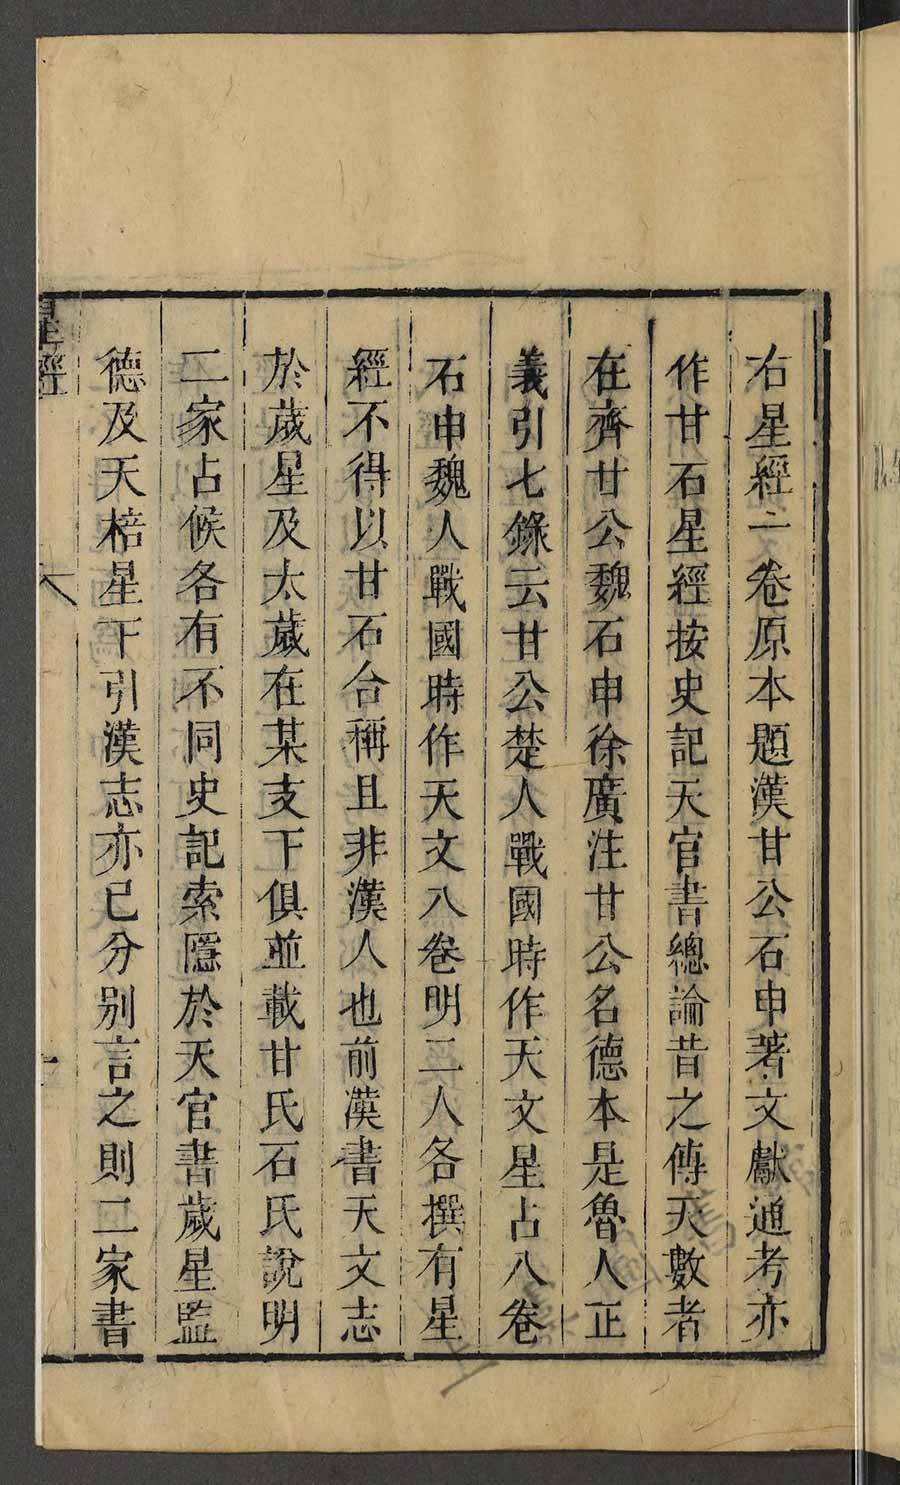 右星經二卷原本題漢甘公石申著文獻通考亦
作甘石星經按史記天官書總論昔之傳天數者
在齊甘公魏石申徐廣注甘公名德本是魯人正
義引七錄云甘公楚人戰國時作天文星占八卷
石申魏人戰國時作天文八卷明二人各撰有星
經不得以甘石合稱且非漢人也前漢書天文志
於歲星及太歲在某支下俱並載甘氏石氏說明
二家占候各有不同史記索隱於天官書歲星監
德及天棓星下引漢志亦已分別言之則二家書
星經